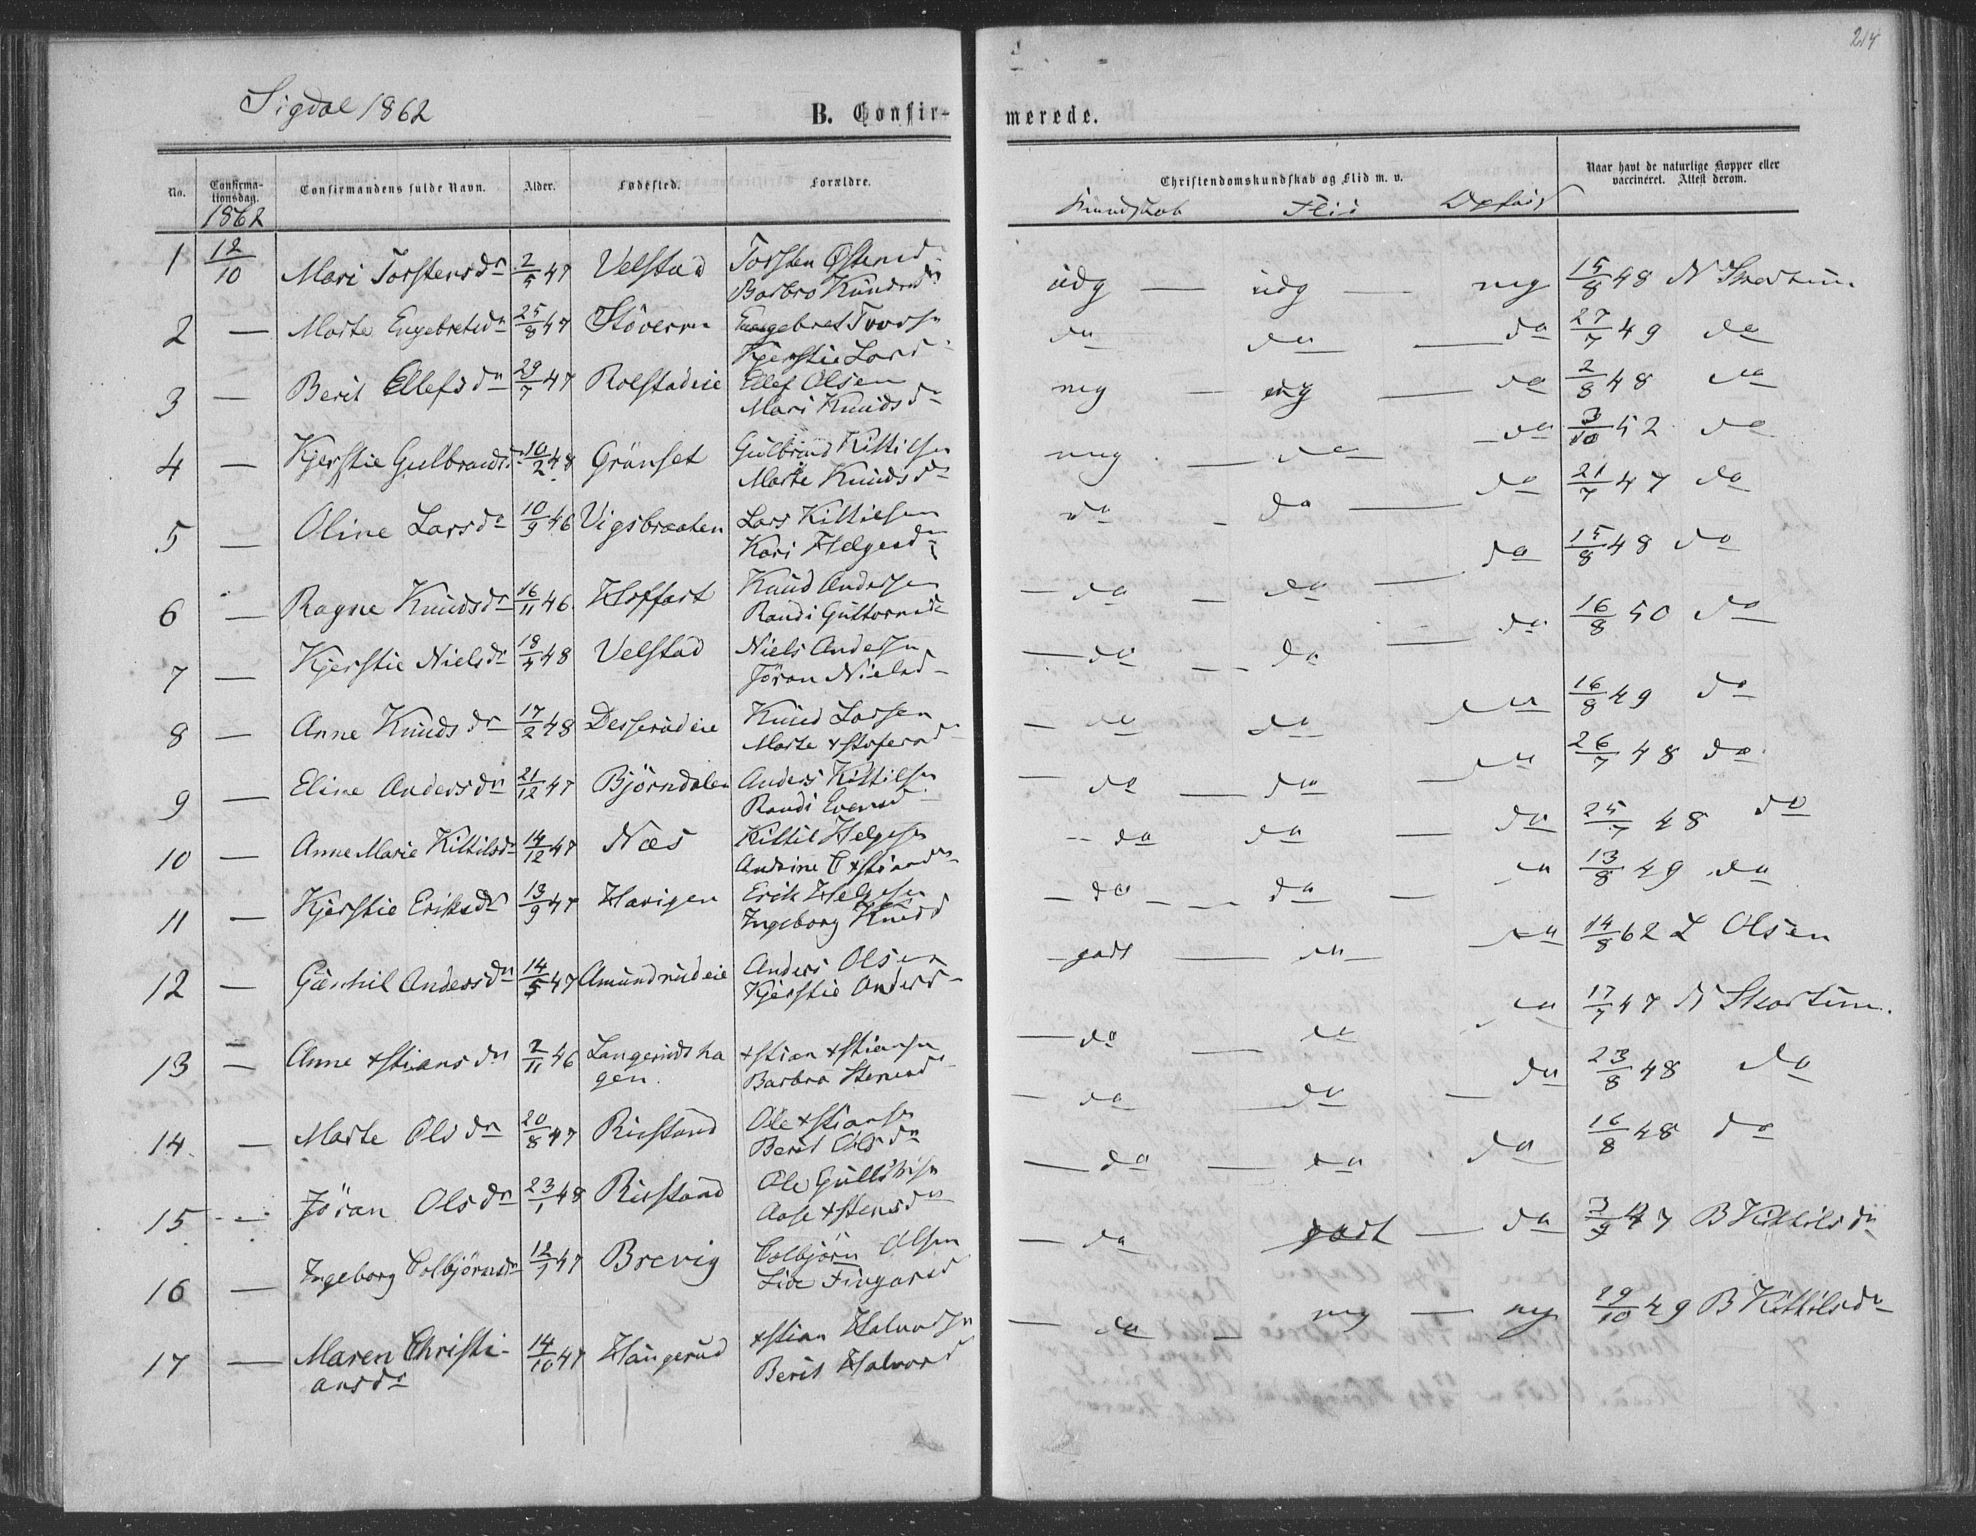 214
Sigdal 1862
B. Confirmerede.
No. Confirmationsdag. Confirmandens fulde Navn. Alder. Fødested. Forældre. Christendomskundskab og Flid m. v. Naar havt de naturlige Kopper eller vaccineret. Attest derom.
1862 Kundskab Flid
1 12/10 Mari Torstensdr 2/5 47 Velstad Torsten Ostensd udg — udg — meg 15/8 48 N Skartum
Barbro Knudsd
2 — Marte Engebretsdr 25/8 47 Støveren Engebret Torsn do do — do 27/7 49 do
Kjerstie Larsd
3 — Berit Ellefsdr 29/7 47 Rolstadeie Ellef Olsen meg — udg — do 2/8 48 do
Mari Knudsdr
4 — Kjerstie Gulbrandsd 10/2 48 Grønset Gulbrand Kittilsen meg — do — do 3/10 52 do
Marte Knudsdr
5 — Oline Larsdr 10/9 46 Vigsbraaten Lars Kittilsen do — do — do 21/7 47 do
Kari Helgesdr
6 — Ragne Knudsdr 16/11 46 Hoffart Knud Andersen — do — do — do 15/8 48 do
Randi Guttormsdr
7 — Kjerstie Nielsdr 18/4 48 Velstad Niels Andersen — do — do — do 16/8 50 do
Jöran Nielsd
8 — Anne Knudsdr 17/2 48 Desserudeie Knud Larsen — do do — do 16/8 49 do
Marte xstofersd
9 — Eline Andersdr 21/12 47 Björndalen Anders Kittilsen — do — do — do 26/7 48 do
Randi Evensd
10 — Anne Marie Kittilsdr 14/12 47 Næs Kittil Helgesen — do do — do 25/7 48 do
Andrine C xstiansdr
11 — Kjerstie Eriksdr 13/9 47 Havigen Erik Helgesen — do — do — do 13/8 49 do
Ingeborg Knudsd
12 — Gunhil Andersdr 14/5 47 Amundrudeie Anders Olsen — godt — do do 14/8 62 L Olsen
Kjerstie Andersd
13 — Anne xstiansdr 2/11 46 Langerudsha xstian xstiansen — do — do do 17/7 47 N Skartum.
gen. Barbro Stenersd
14 — Marte Olsdr 20/8 47 Rustand Ole xstiansn — do do — do 23/8 48 do
Berit Olsdr
15 — Jöran Olsdr 23/1 48 Rustand Ole Gullshn — do — do do 16/8 48 do
Aase xstensdr
16 — Ingeborg Colbjörnsdr 12/7 47 Brevig Colbjörn Olsen — do godt — do 3/9 47 B Kittilsdr
Live Fingarsd
17 — Maren Christi- 14/10 47 Haugerud xstian Halvorsn — do — meg — meg 29/10 49 B Kittilsdr
ansdr Berit Halvorsd